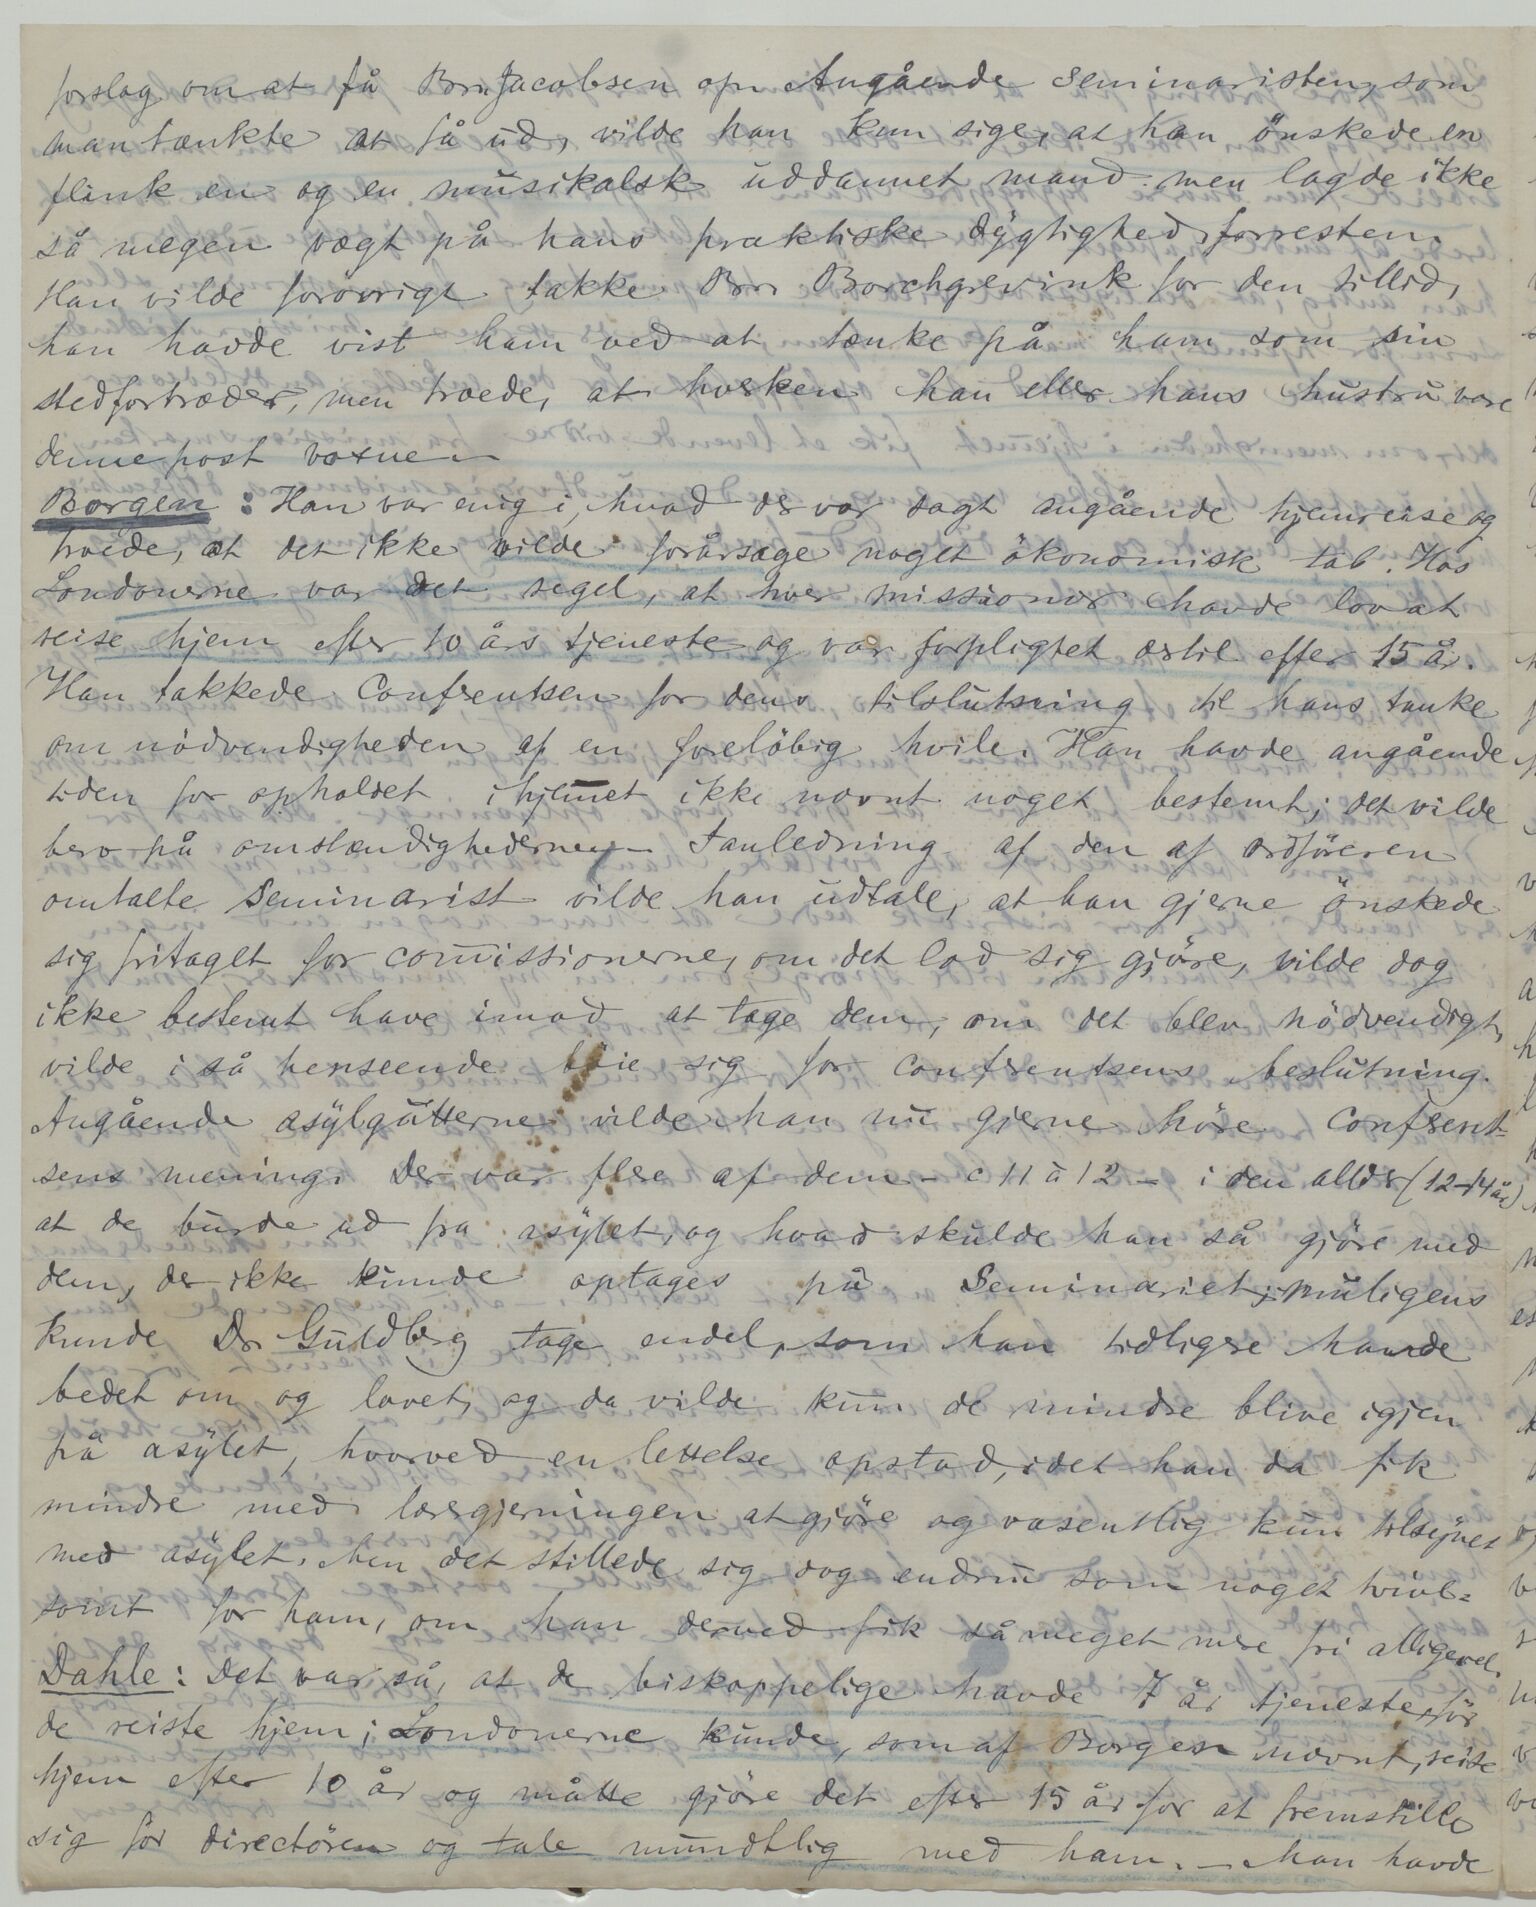 forslag om at få Brr. Jacobsen op. Angående Seminaristen, som
man tænkte at få ud, vilde han kun sige, at han önskede en
flink en og en musikalsk uddannet mand; men lagde ikke
så megen vægt på hans praktiske dygtighed forresten.
Han vilde forövrigt takke Brr. Borchgrevink for den tillid,
han havde vist ham ved at tænke på ham som sin
stedfortræder, men troede, at hverken han eller hans hustru vare
denne post voxne. –
Borgen: Han var enig i, hvad der var sagt angående hjemreise og
troede, at det ikke vilde forårsage noget ökonomisk tab. Hos
Londonerne var det regel, at hver missionær havde lov at
reise hjem efter 10 års tjeneste og var forpligtet dertil efter 15 år.
Han takkede Conferentsen for dens tilslutning til hans tanke
om nödvendigheden af en forelöbig hvile. Han havde angående
tiden for opholdet i hjemmet ikke nævnt noget bestemt; det vilde
bero på omstændighederne. – I anledning af den af ordföreren
omtalte Seminarist vilde han udtale, at han gjerne önskede
sig fritaget for comissionerne, om det lod sig gjöre, vilde dog
ikke bestemt have imod at tage dem, om det blev nödvendigt,
vilde i så henseende böie sig for Conferentsens beslutning.
Angående asylgutterne vilde han nu gjerne höre Conferent-
sens mening. Der var flere af dem – c 11 à 12 – i den alder (12–14 år)
at de burde ud fra asylet, og hvad skulde han så gjöre med
dem, der ikke kunde optages på Seminariet; muligens
kunde Dr. Guldberg tage endel, som han tidligere havde
bedet om og lovet, og da vilde kun de mindre blive igjen
på asylet, hvorved en lettelse opstod, idet han da fik
mindre med lærergjerningen at gjöre og væsentlig kun tilsynet
med asylet. Men det stillede sig dog endnu som noget tvivl=
somt for ham, om han derved fik så meget mere fri alligevel.
Dahle: Det var så, at de biskoppelige havde 7 år tjeneste, för
de reiste hjem; Londonerne kunde, som af Borgen nævnt, reise
hjem efter 10 år og måtte gjöre det efter 15 år for at fremstille
sig for directören og tale mundtlig med ham. – Man havde